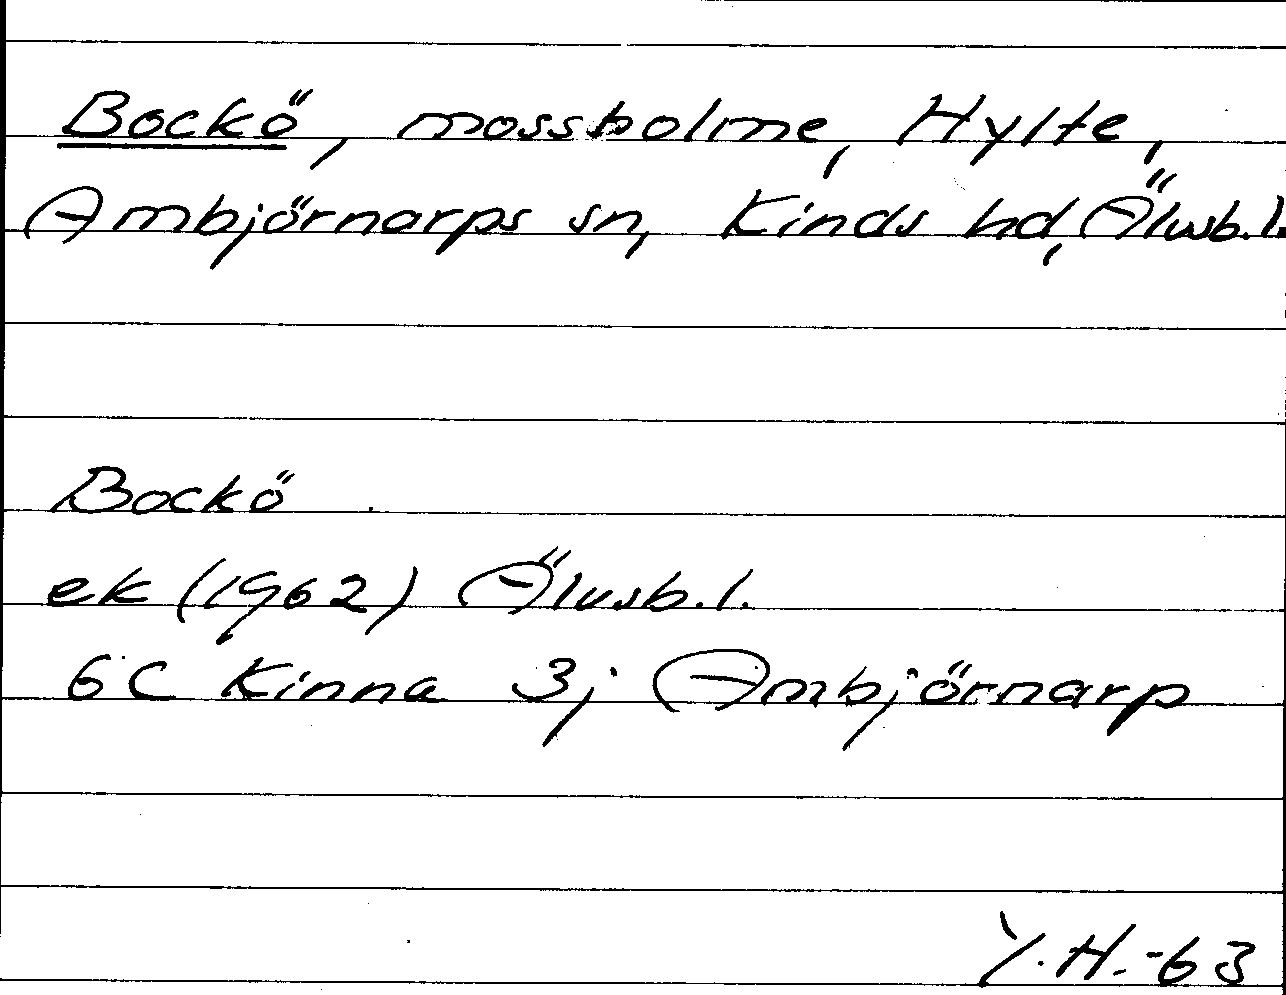 Bockö, mossholme, Hylte,
Ambjörnarps sn, Kinds hd, Älvsb.l.
Bockö
ek (1962) Älvsb.l.
6C Kinna 3j Ambjörnarp
Y.H.-63